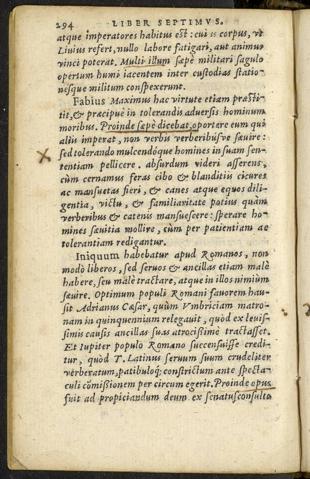 294 LIBER SEPTIMVS.
atque imperatores habitus est: cui is corpus, vt
Liuius refert, nullo labore fatigari, aut animus
vinci poterat. Multi illum sæpè militari sagulo
opertum humi iacentem inter custodias statio-
nesque militum conspexerunt.
Fabius Maximus hac virtute etiam præsti-
tit, & præcipuè in tolerandis aduersis hominum
moribus. Proinde sæpè dicebat, oportere eum qui
aliis imperat, non verbis verberibúsve sæuire:
sed tolerando mulcendóque homines in suam sen-
tentiam pellicere. absurdum videri asserens,
cùm cernamus feras cibo & blanditiis cicures
ac mansuetas fieri, & canes atque equos dili-
gentia, victu, & familiaritate potius quàm
verberibus & catenis mansuescere: sperare ho-
mines sæuitia mollire, cùm per patientiam ac
tolerantiam redigantur.
Iniquum habebatur apud Romanos, non
modò liberos, sed seruos & ancillas etiam malè
habere, seu malè tractare, atque in illos nimiùm
sæuire. Optimum populi Romani fauorem hau-
sit Adrianus Cæsar, quùm Vmbriciam matro-
nam in quinquennium relegauit, quòd ex leuis-
simis causis ancillas suas atrocissimè tractasset.
Et Iupiter populo Romano succensuisse credi-
tur, quòd T. Latinus seruum suum crudeliter
verberatum, patibulóq; constrictum ante specta-
culi cōmissionem per circum egerit. Proinde opus
fuit ad propiciandum deum ex senatusconsulto